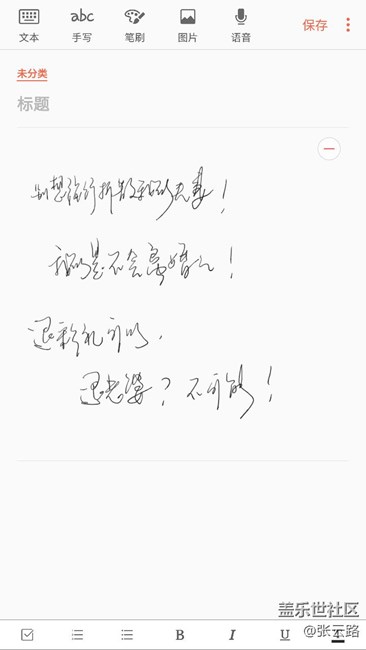 文本 手写 笔刷 图片 语音 保存
abc
未分类
标题
别想强行拆散我们夫妻！
我们是不会离婚的！
退彩礼可以，
退老婆？不可能！
B I U A
盖乐世社区
@张云路